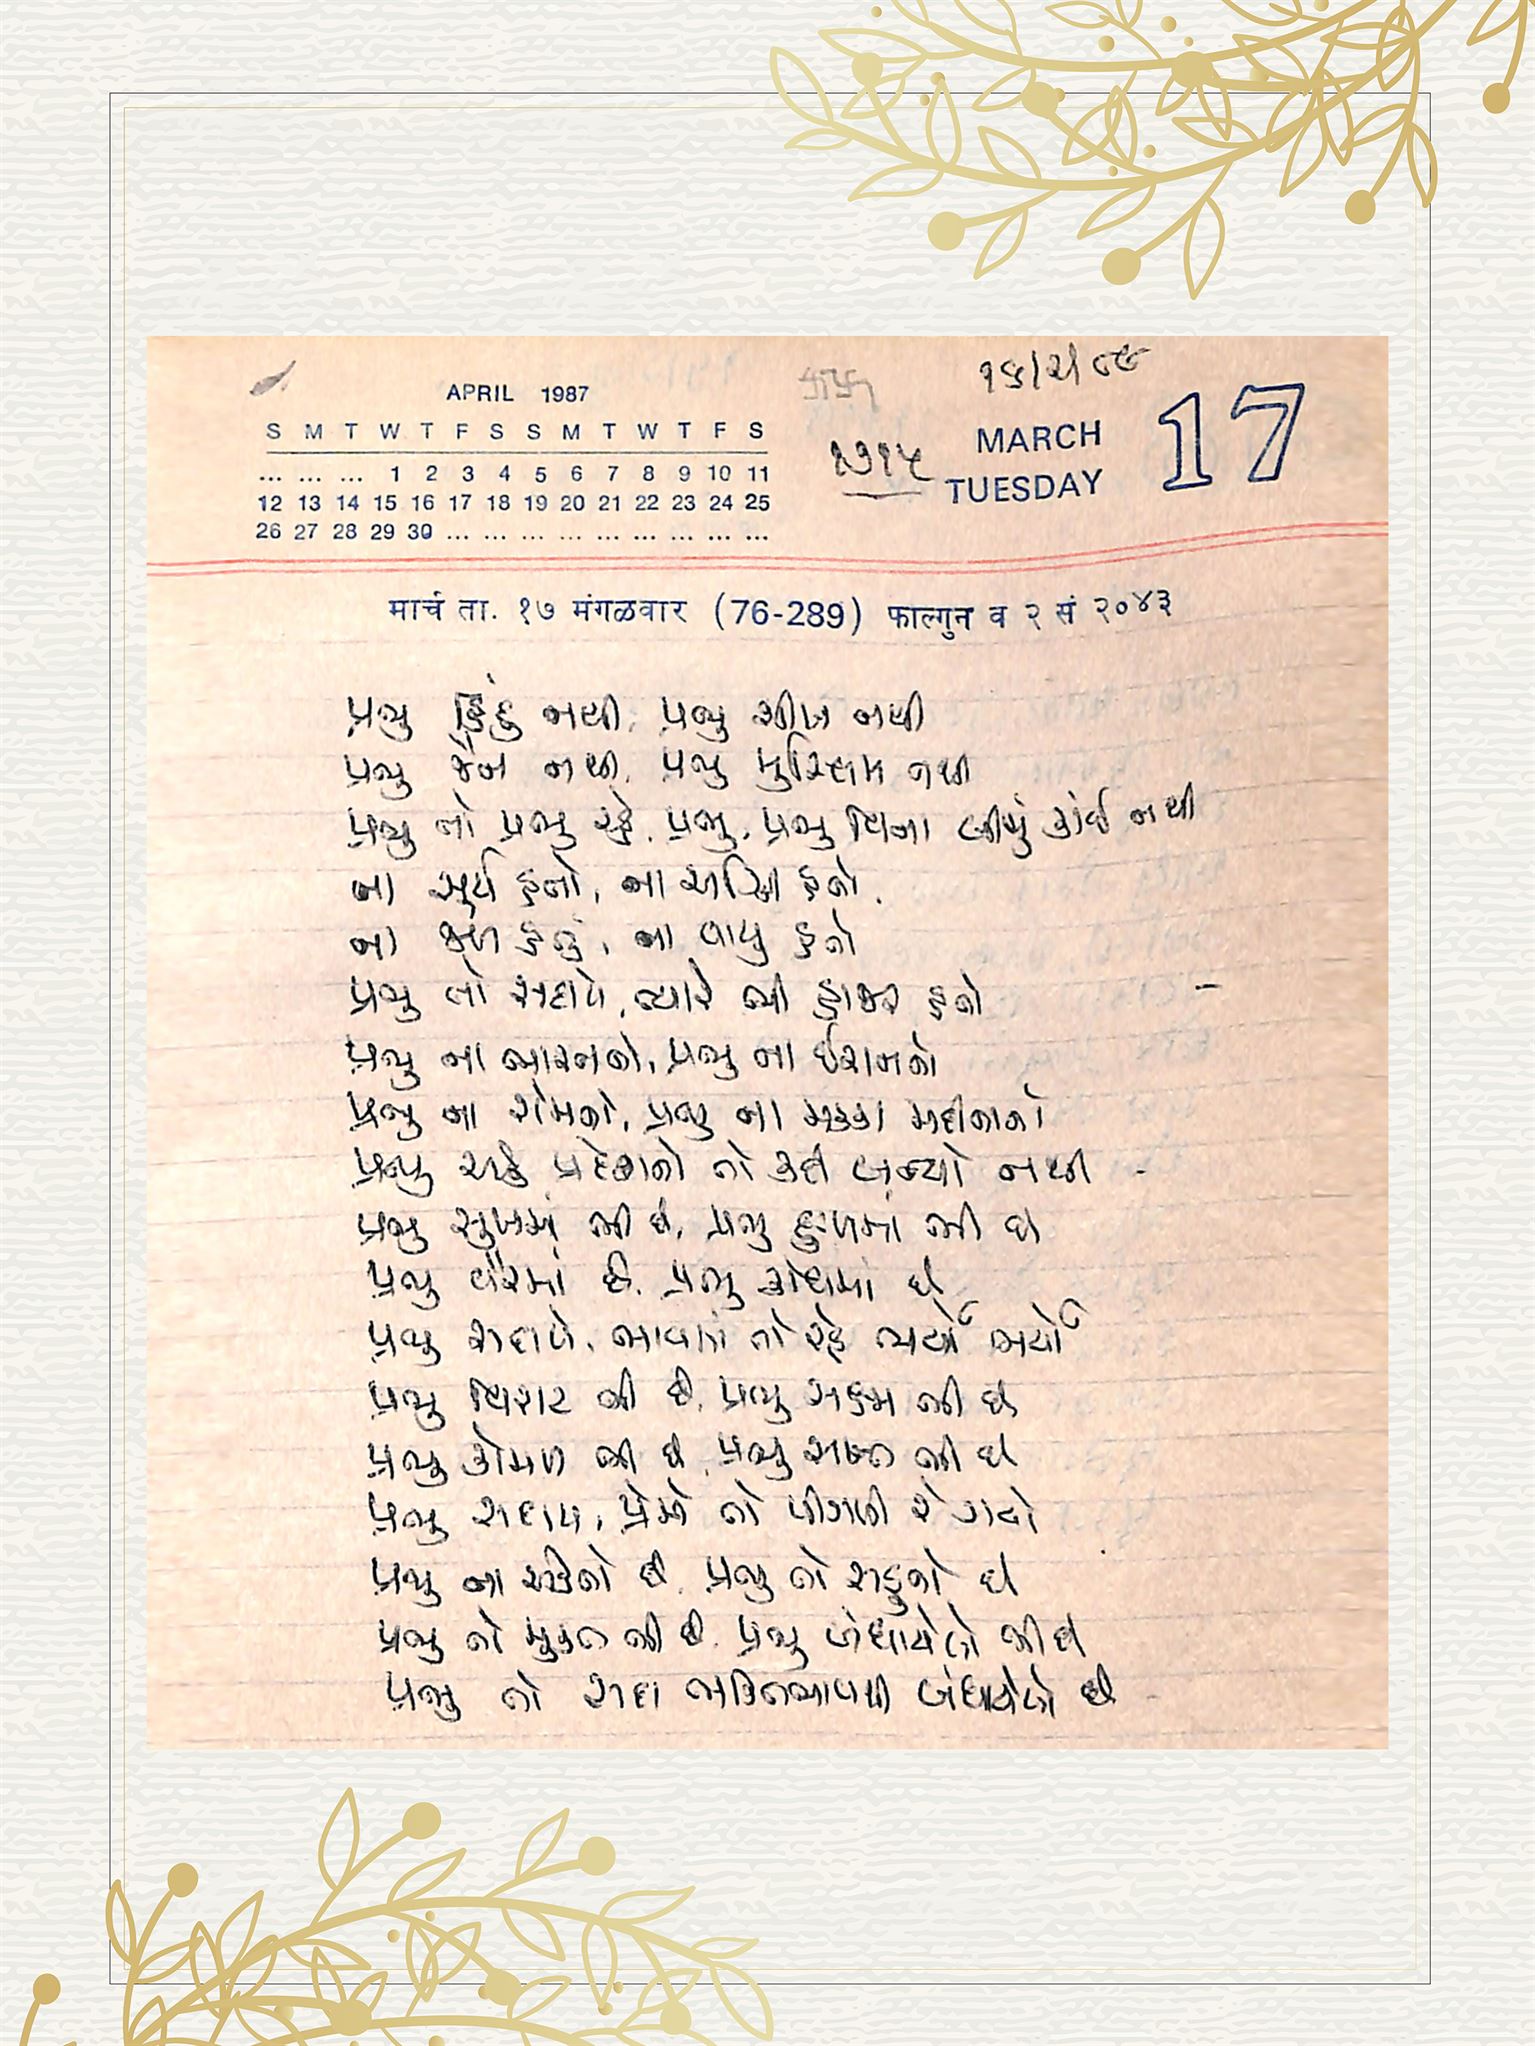 APRIL 1987
S M T W T F S S M T W T F S
... ... ... 1 2 3 4 5 6 7 8 9 10 11
12 13 14 15 16 17 18 19 20 21 22 23 24 25
26 27 28 29 30 ... ... ... ... ... ... ... ... ...
૧૭૧૫
MARCH
TUESDAY
17
मार्च ता. १७ मंगळवार (76-289) फाल्गुन व २ सं २०४३
પ્રભુ હિંદુ નથી, પ્રભુ શીખ નથી
પ્રભુ જૈન નથી, પ્રભુ મુસ્લિમ નથી
પ્રભુ તો પ્રભુ રહે, પ્રભુ, પ્રભુ વિના બીજું કાંઈ નથી
ના સૂર્ય હતો, ના અગ્નિ હતો,
ના જળ હતું, ના વાયુ હતો
પ્રભુ તો સદાયે, ત્યારે ભી હાજર હતો
પ્રભુ ના ભારતનો, પ્રભુ ના ઈરાનનો
પ્રભુ ના રોમનો, પ્રભુ ના મક્કા મદીનાનો
પ્રભુ એક પ્રદેશનો તો કદી બન્યો નથી -
પ્રભુ સુખમાં ભી છે, પ્રભુ દુઃખમાં ભી છે
પ્રભુ વૈરમાં છે, પ્રભુ ક્રોધમાં છે
પ્રભુ સદાયે, ભાવમાં તો રહે ભર્યો ભર્યો
પ્રભુ વિરાટ ભી છે, પ્રભુ સૂક્ષ્મ ભી છે
પ્રભુ કોમળ ભી છે, પ્રભુ સખ્ત ભી છે
પ્રભુ સદાય, પ્રેમે તો પીગળી રે ગયો
પ્રભુ ના એકનો છે, પ્રભુ તો સહુનો છે
પ્રભુ તો મુક્ત ભી છે, પ્રભુ બંધાયેલો ભી છે
પ્રભુ તો સદા ભક્તિભાવથી બંધાયેલો છે -